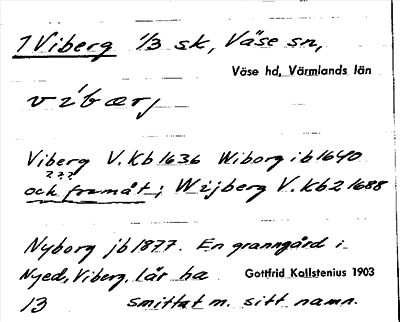 1 Viberg 1/3 sk, Väse sn,
Väse hd, Värmlands län
víbærj
Viberg V.Kb 1636 Wiborg ib 1640
???
och framåt; Wijberg V.Kb2 1688
Nyborg jb 1877. En granngård i
Nyed, Viberg, lär ha
Gottfrid Kallstenius 1903
13 smittat m. sitt namn.